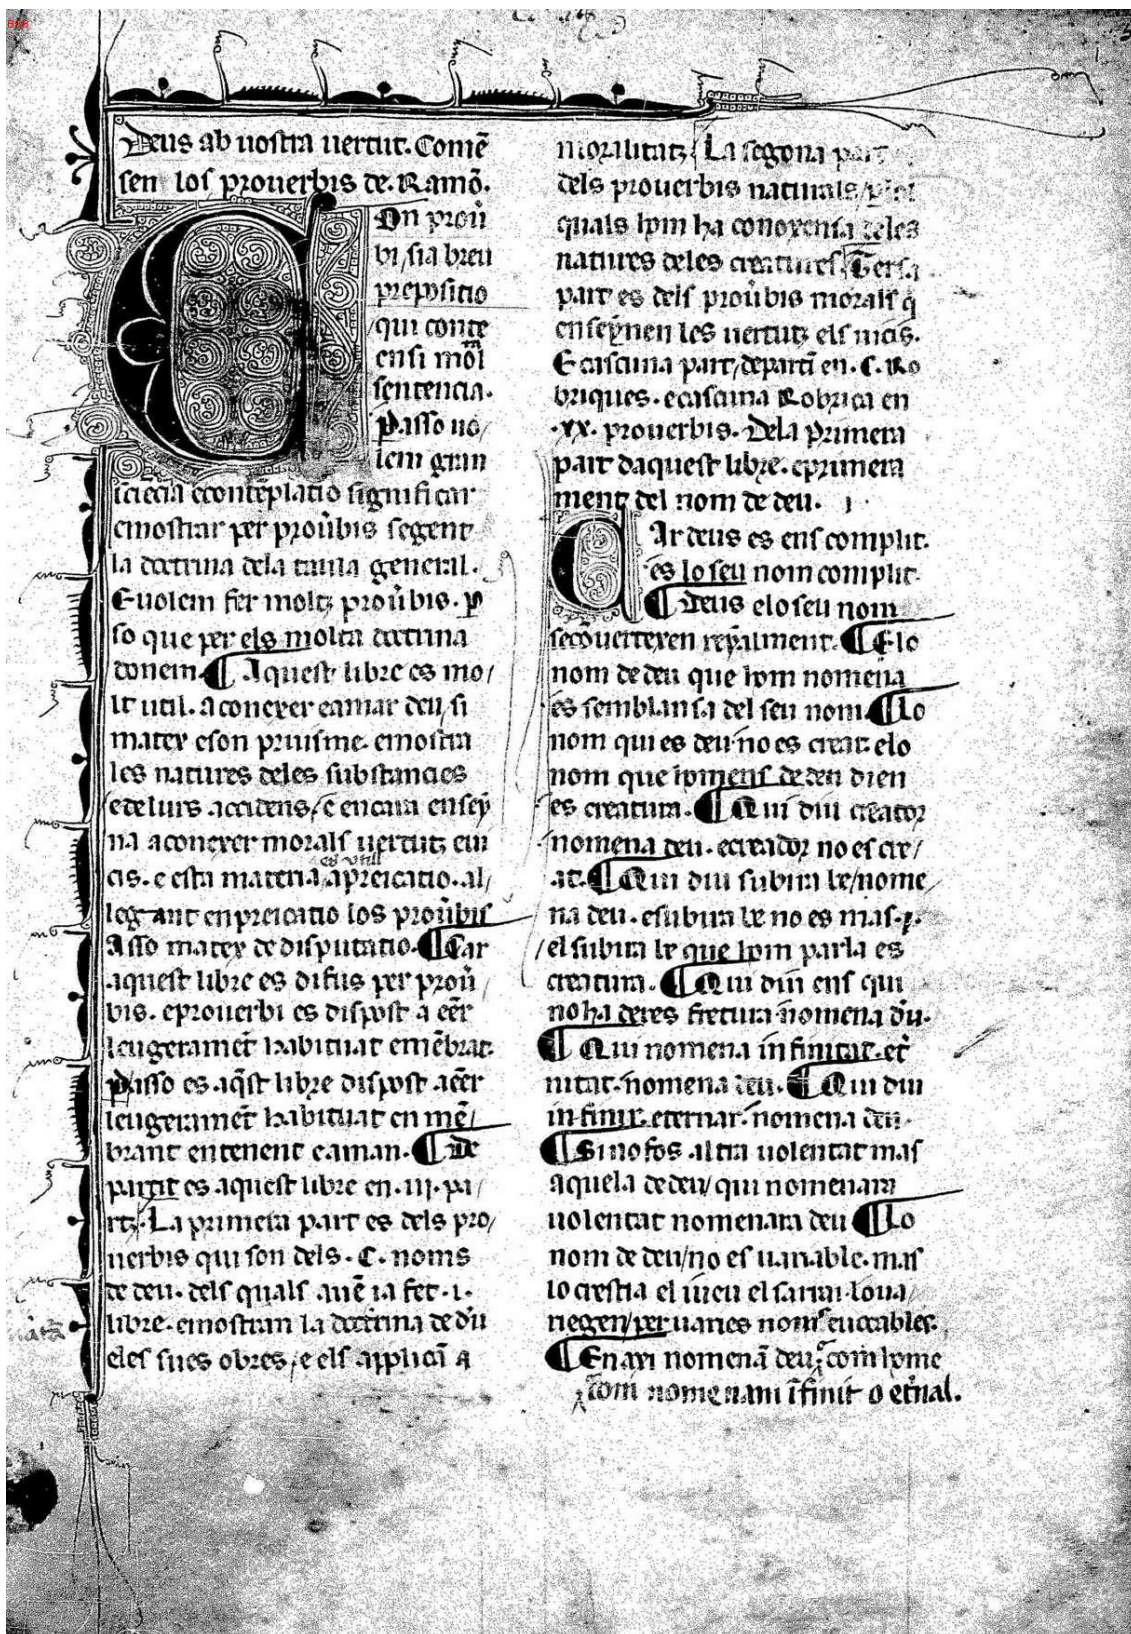 Deus ab uostra uertut. Comē
sen los prouerbis de. Ramō.
On proū
bi / sia breu
preposicio
qui conte
en si mōl
sentencia.
Passo uo /
lem gran
sciēcia econtēplatio significar
emostrar per proūbis segent
la doctrina dela taula general.
E uolem fer moltz proūbis. p
so que per els molta doctrina
donem. ¶ Aquest libre es mo /
lt util. a conexer eamar deu / si
matex eson pruisme. emostra
les natures deles substancies
e de lurs accidens / e encara ensey
na a conexer morals uertutz eui
cis. e esta materia es util a preicacio. al /
legant en preicacio los proūbis
Asso matex de disputacio. ¶ Car
aquest libre es difus per proū /
bis. eprouerbi es dispost a eēr
leugeramēt habituat e mēbrat.
Passo es aq̄st libre dispost a eēr
leugeramēt habituat en mē /
brant entenent e aman. ¶ De
partit es aquest libre en .iii. pa /
rtz. La primera part es dels pro /
uerbis qui son dels .C. noms
de deu. dels quals auē ia fet .i.
libre. emostran la doctrina de dū
eles sues obres / e els applicā a
moralitatz La segona part
dels prouerbis naturals / per
quals hom ha conoxensa deles
natures deles creatures. Tersa
part es dels proūbis morals q̄
enseynen les uertutz els uicis.
E cascuna part / departī en .C. Ro
briques. e cascuna Robrica en
.xx. prouerbis. Dela primera
part daquest libre. eprimera
ment del nom de deu. i
Car deus es ens complit.
es lo seu nom complit.
¶ Deus elo seu nom
se cōuertexen reyalment. ¶ E lo
nom de deu que hom nomena
es semblansa del seu nom. ¶ Lo
nom qui es deu no es creat. elo
nom que homens de deu dien
es creatura. ¶ Qui diu creator
nomena deu. ecreador no es cre /
at. ¶ Qui diu subira be / nome /
na deu. esubira be no es mas .i.
el subira be que hom parla es
creatura. ¶ Qui diu ens qui
no ha de res fretura nomena dū.
¶ Qui nomena infinitat. et̄
nitat. nomena deu. ¶ Qui diu
infinir. eternar. nomena deu.
¶ Si no fos altra uolentat mas
aquela de deu / qui nomenara
uolentat nomenara deu ¶ Lo
nom de deu / no es uariable. mas
lo crestia el iueu el sarray lo ua /
riegen / per uaries noms euocables.
¶ En axi nomenā deu, com home
com nomenam īfinit o et̄nal.